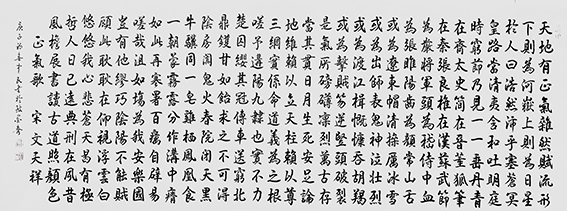 天地有正氣雜然賦流形
下則為河嶽上則為日星
於人曰浩然沛乎塞蒼冥
皇路當清夷含和吐明庭
時窮節乃見一一垂丹青
在齊太史簡在晉董狐筆
在秦張良椎在漢蘇武節
為嚴將軍頭為嵇侍中血
為張睢陽齒為顏常山舌
或為遼東帽清操厲冰雪
或為出師表鬼神泣壯烈
或為渡江楫慷慨吞胡羯
或為擊賊笏逆豎頭破裂
是氣所磅礴凜烈萬古存
當其貫日月生死安足論
地維賴以立天柱賴以尊
三綱實係命道義為之根
嗟予遘陽九隸也實不力
楚囚纓其冠傳車送窮北
鼎鑊甘如飴求之不可得
陰房闃鬼火春院閟天黑
牛驥同一皂雞棲鳳凰食
一朝蒙霧露分作溝中瘠
如此再寒暑百癘自辟易
嗟哉沮洳場為我安樂國
豈有他繆巧陰陽不能賊
顧此耿耿在仰視浮雲白
悠悠我心悲蒼天曷有極
哲人日已遠典刑在夙昔
風檐展書讀古道照顏色
正氣歌 宋文天祥
庚子